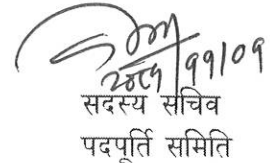 २०८१/११/०१
सदस्य सचिव
पदपूर्ति समिति